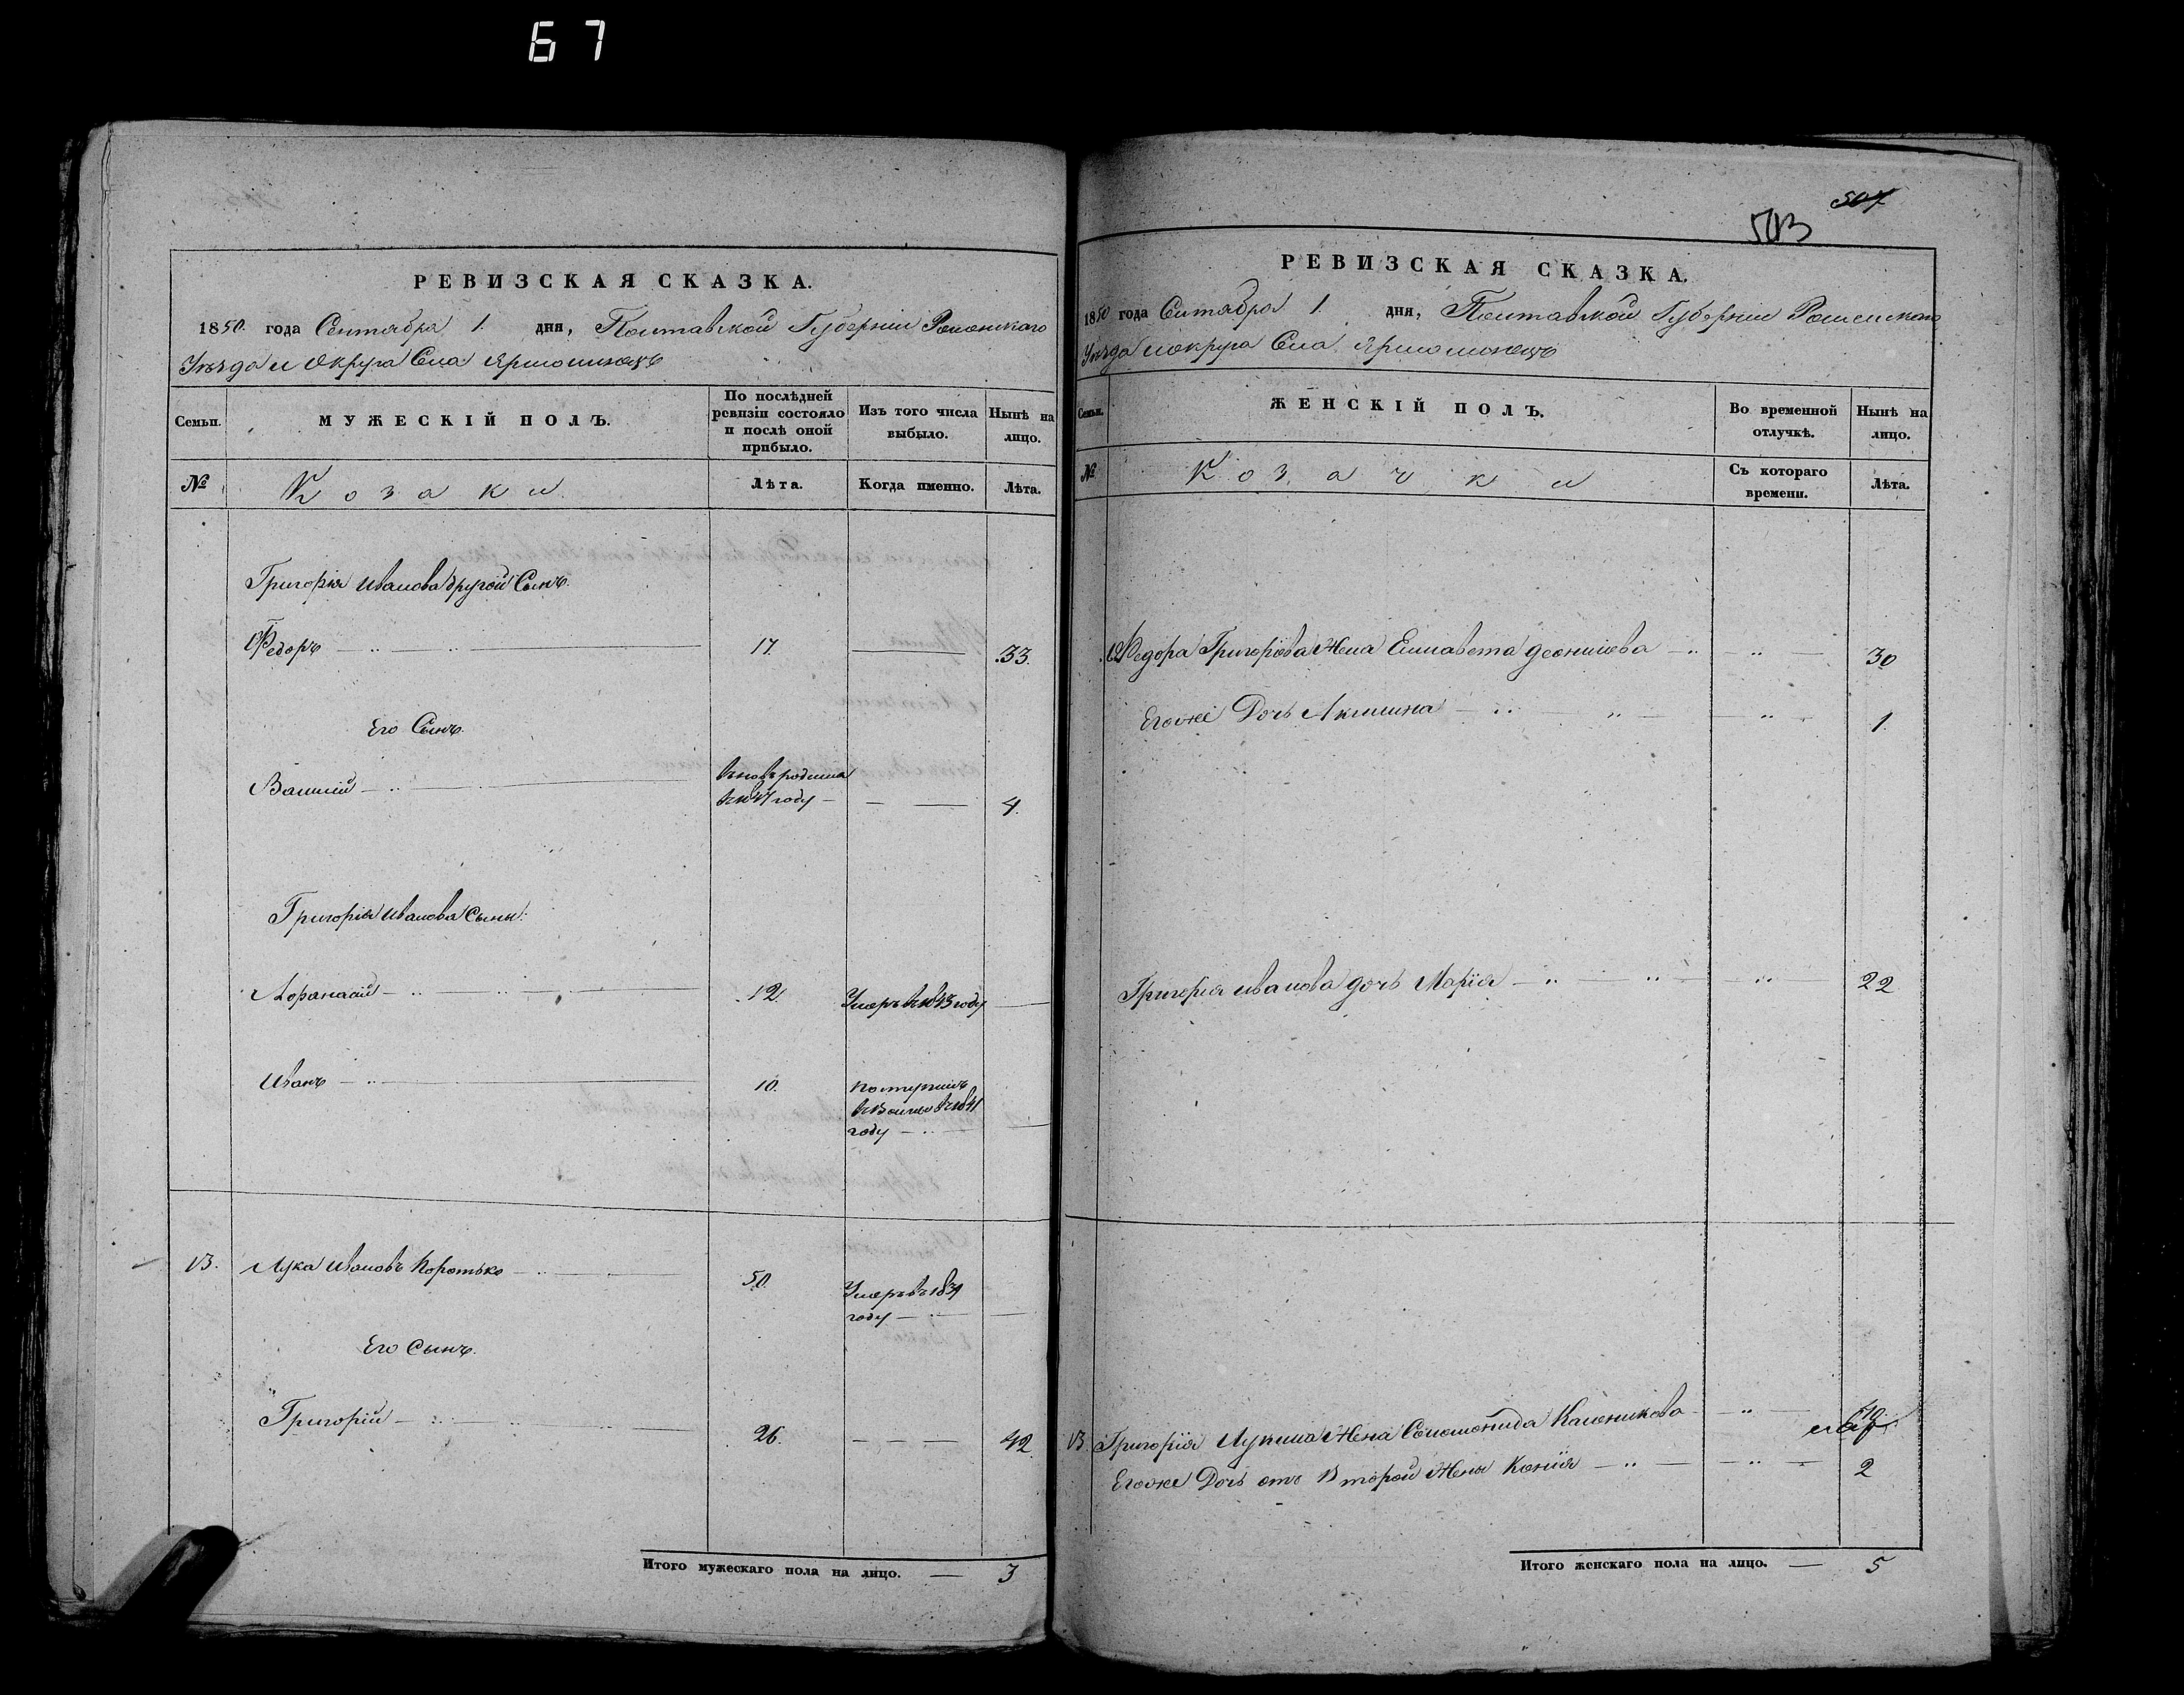 67
507
503
РЕВИЗСКАЯ СКАЗКА.
1850. года Сентября 1. дня, Полтавской Губерніи Роменскаго
Уѣзда и Округа Села Ярмолинецъ
Семьи.
МУЖЕСКІЙ ПОЛЪ.
По послѣдней ревизіи состояло и послѣ оной прибыло.
Изъ того числа выбыло.
Нынѣ на лицо.
№
Козаки
Лѣта.
Когда именно.
Лѣта.
Григорія Иванова другой Сынъ.
Федоръ 17. 33.
Его Сынъ.
Василій
вновь родился
въ 1847 году 4.
Григорія Иванова Сыны:
Афанасій 12. Умеръ въ 1843 году
Иванъ 10. поступилъ
въ 1841
году
13. Лука Ивановъ Коротько 50. Умеръ въ 1839
году
Его Сынъ.
Григорій 26. 42
Итого мужескаго пола на лицо. 3
РЕВИЗСКАЯ СКАЗКА.
1850 года Сентября 1. дня, Полтавской Губерніи Роменскаго
Уѣзда и округа Села Ярмолинецъ
Семьи.
ЖЕНСКІЙ ПОЛЪ.
Во временной отлучкѣ.
Нынѣ на лицо.
№
Козачки
Съ котораго времени.
Лѣта.
Федора Григоріева Жена Елисавета 30
Егоже Дочь Акилина 1.
Григорія Иванова дочь Марія 22
13. Григорія Лукина Жена Соломонида
Егоже Дочь отъ Второй Жены Ксенія 2
Итого женскаго пола на лицо. 5